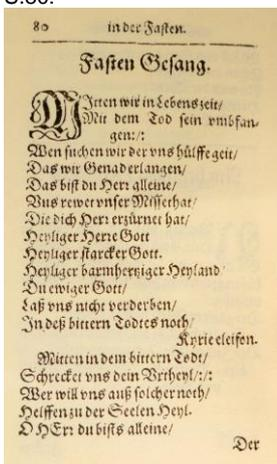 S.80.
80 in der Fasten.
Fasten Gesang.
MItten wir in Lebens zeit/
Mit dem Tod sein vmbfan-
gen:/:
Wen suchen wir der vns hülffe geit/
Das wir Genad erlangen/
Das bist du Herr alleine/
Vns rewet vnser Missethat/
Die dich Herr erzürnet hat/
Heyliger Herre Gott
Heyliger starcker Gott.
Heyliger barmhertziger Heyland/
Du ewiger Gott/
Laß vns nicht verderben/
In deß bittern Todtes noth/
Kyrie eleison.
Mitten in dem bittern Todt/
Schrecket vns dein Vrtheyl/:/:
Wer will vns auß solcher noth/
Helffen zu der Seelen Heyl.
O HErr du bists alleine/
Der